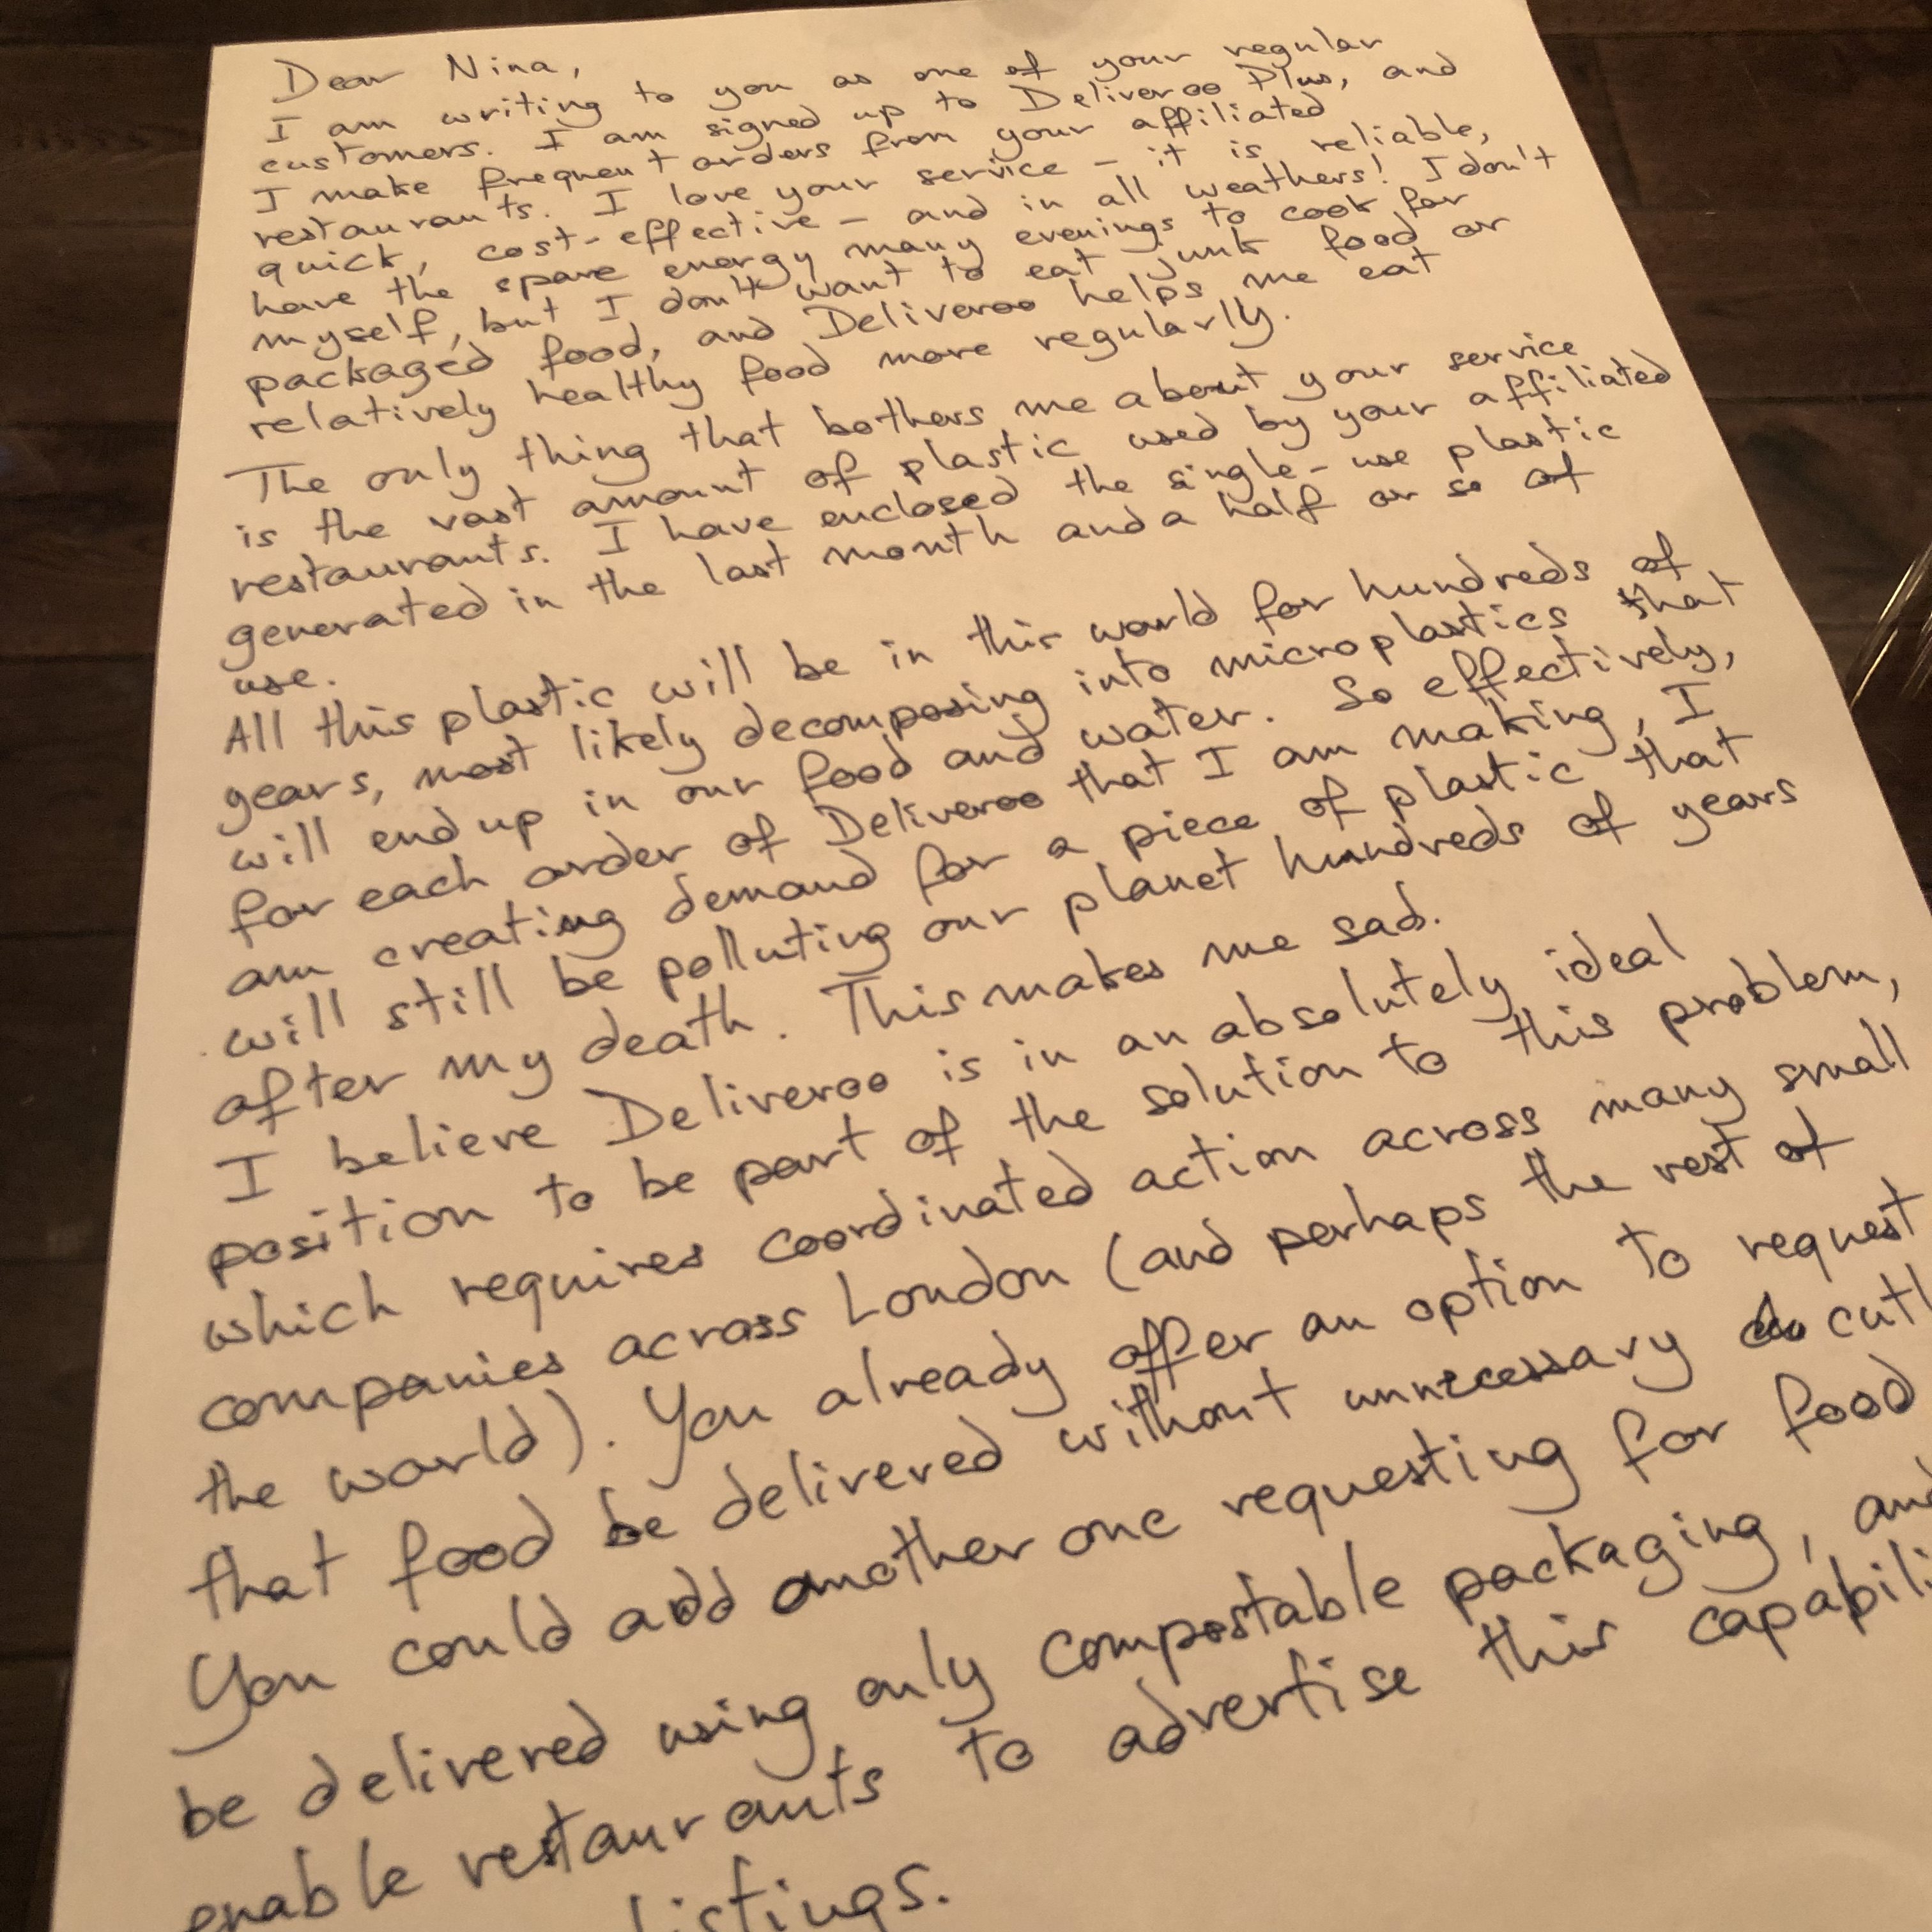 Dear Nina,
I am writing to you as one of your regular
customers. I am signed up to Deliveroo Plus, and
I make frequent orders from your affiliated
restaurants. I love your service - it is reliable,
quick, cost-effective - and in all weathers! I don't
have the spare energy many evenings to cook for
myself, but I don't want to eat junk food or
packaged food, and Deliveroo helps me eat
relatively healthy food more regularly.
The only thing that bothers me about your service
is the vast amount of plastic used by your affiliated
restaurants. I have enclosed the single-use plastic
generated in the last month and a half or so of
use.
All this plastic will be in this world for hundreds of
years, most likely decomposing into microplastics that
will end up in our food and water. So effectively,
for each order of Deliveroo that I am making, I
am creating demand for a piece of plastic that
will still be polluting our planet hundreds of years
after my death. This makes me sad.
I believe Deliveroo is in an absolutely ideal
position to be part of the solution to this problem,
which requires coordinated action across many small
companies across London (and perhaps the rest of
the world). You already offer an option to request
that food be delivered without unnecessary cutl
You could add another one requesting for food
be delivered using only compostable packaging, and
enable restaurants to advertise this capabili
listings.